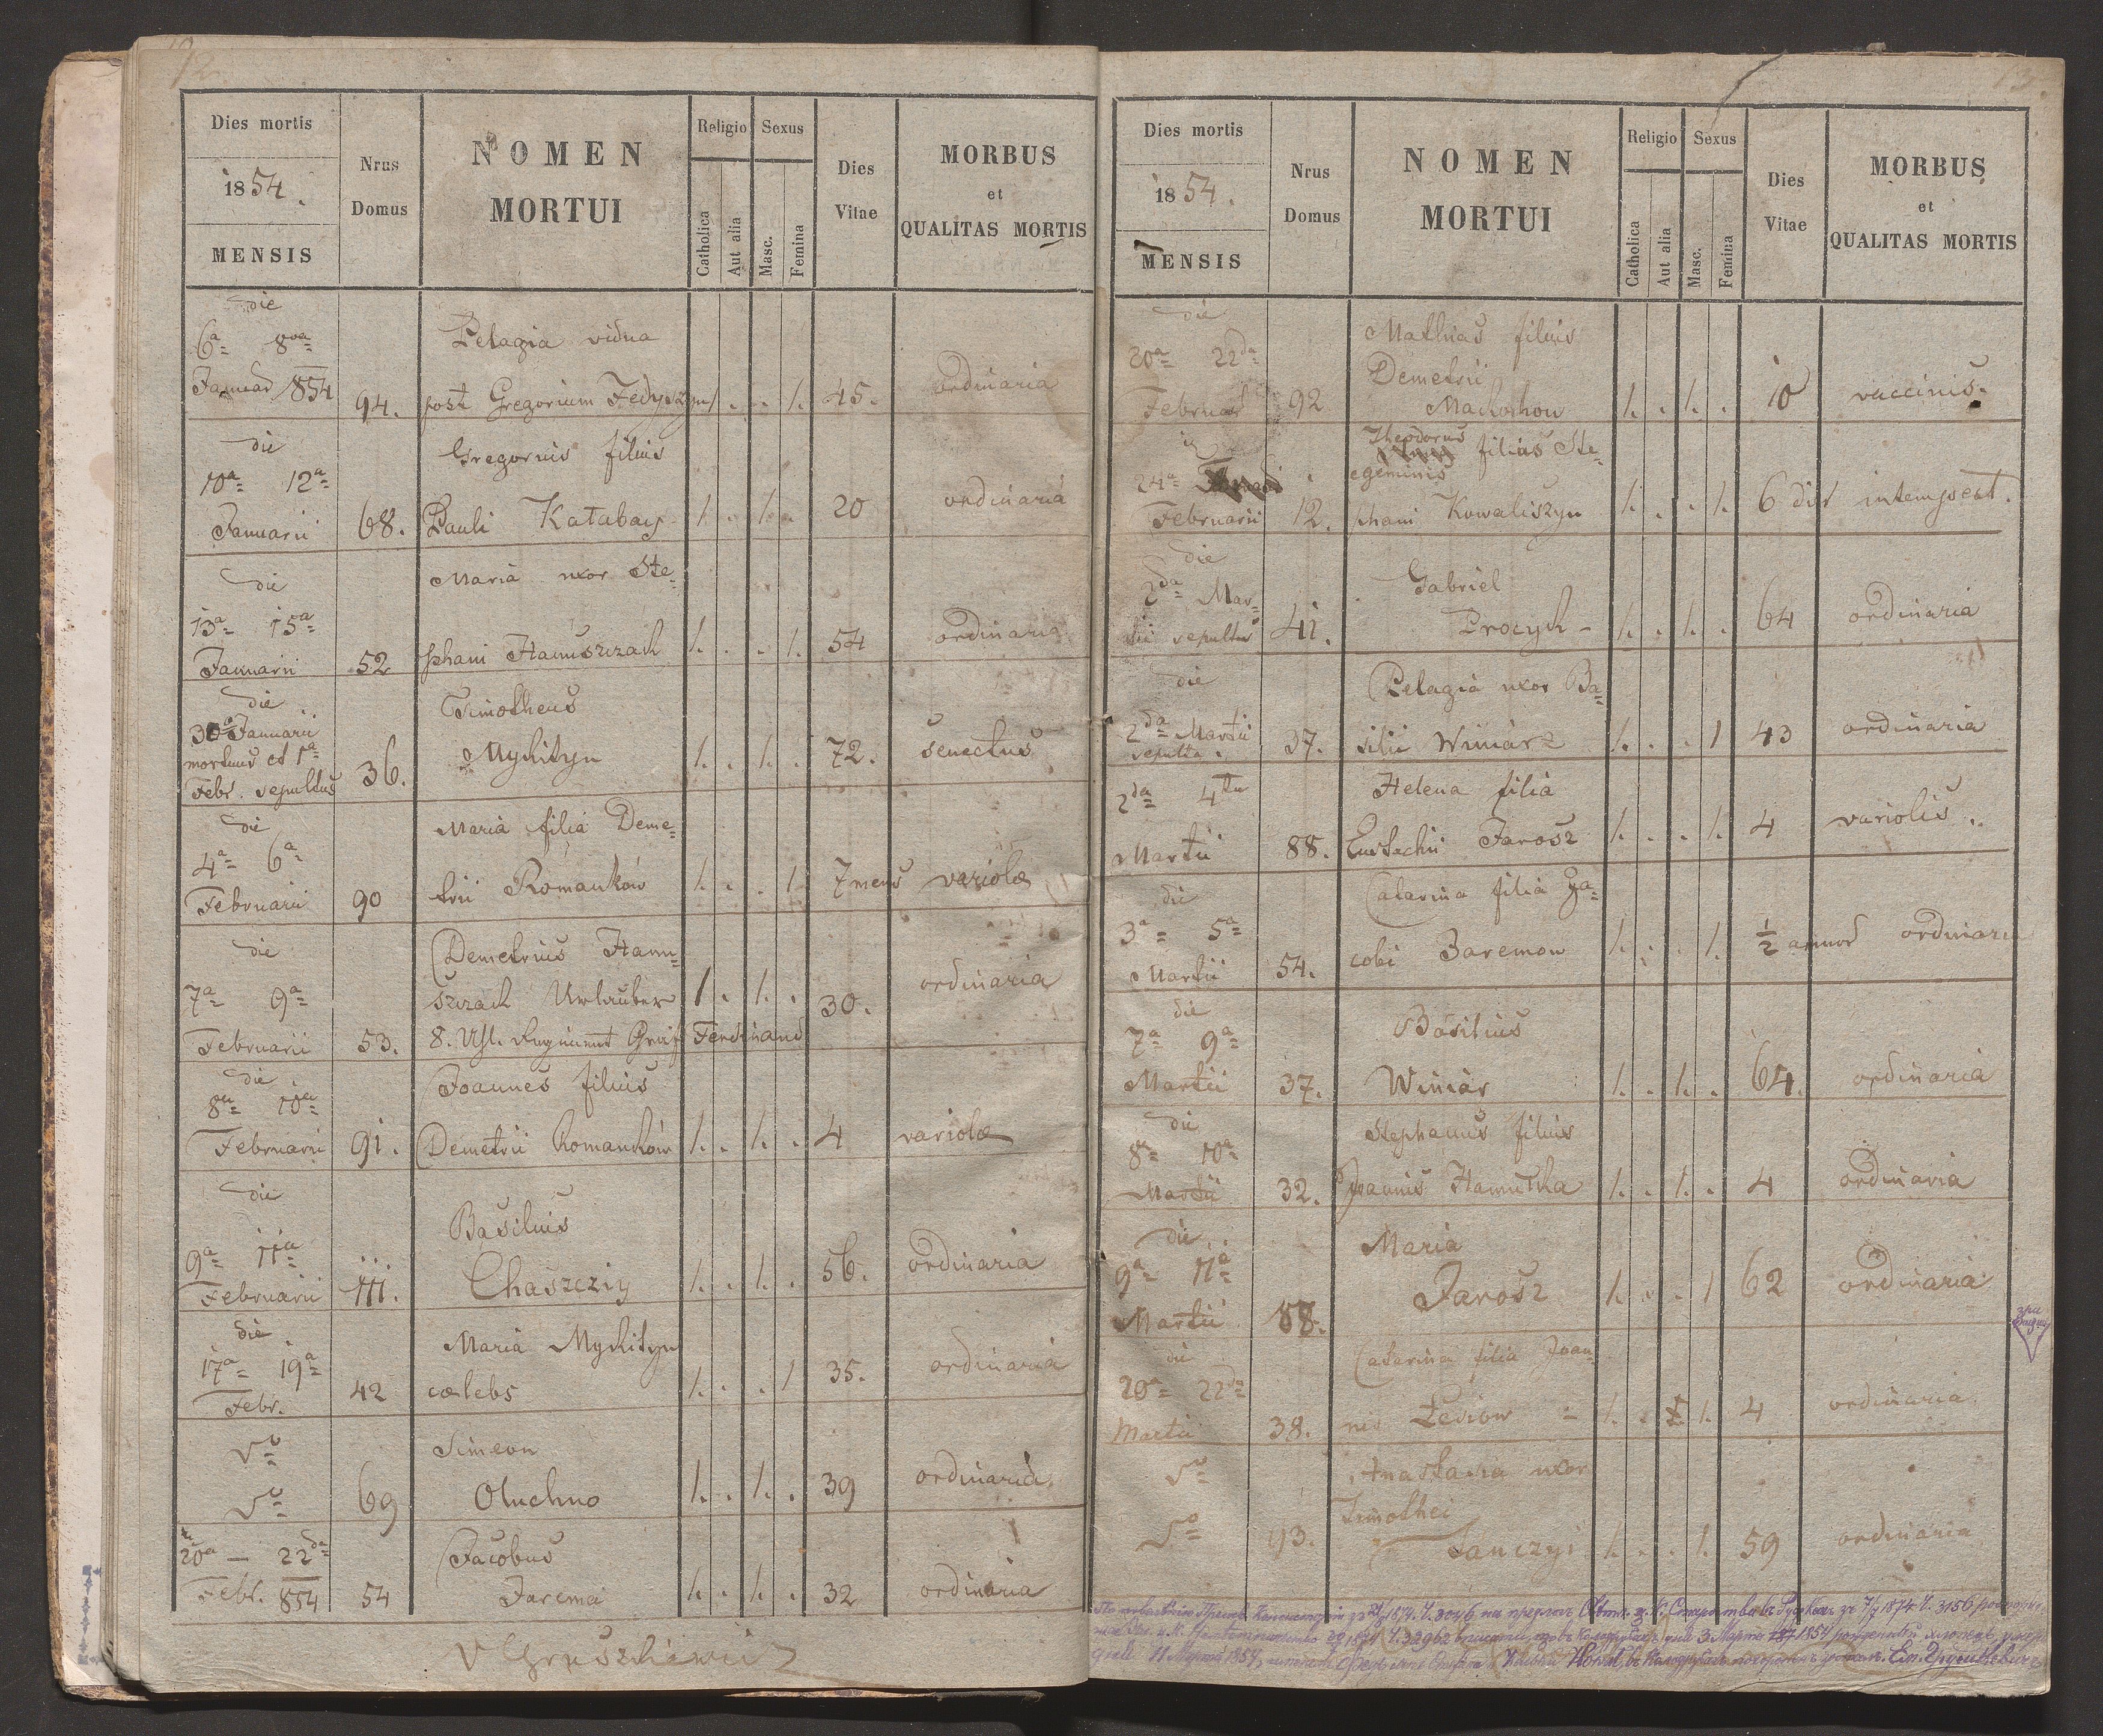 12
Dies mortis
1854.
MENSIS
Nrus
Domus
NOMEN
MORTUI
Religio
Catholica
Aut alia
Sexus
Masc.
Femina
Dies
Vitae
MORBUS
et
QUALITAS MORTIS
die
6a 8va Pelagia vidua
Januar 854 94. post Gregorium Fedyszyn 1. . . 1. 45. ordinaria
die
10a 12a Gregorius filius
Januarii 68. Pauli Katabay 1. . 1. . 20 ordinaria
die Maria uxor Ste=
13a 15a
Januarii 52 phani Hanuszczach 1. . . 1. 54 ordinaria
die Timotheus
30a Januarii
mortuus et 1a
Febr. sepultus 36. Mykityn 1. . 1. . 72. senectus
die Maria filia Deme=
4a 6a
Februarii 90 trii Romanków 1. . . 1. 7 mens variola
die Demetrius Hanu=
7a 9a szczach Urlauber 1 . 1. . 30. ordinaria
Februarii 53. 8. Regiment Ferdinand
die Joannes filius
8a 10a
Februarii 91. Demetrii Romanków 1. . 1. . 4 variola
die Basilius
9a 11a
Februarii 111. Chaszcziy 1. . 1. . 56. ordinaria
die Maria Mykityn
17a 19a
Febr. 42 cœlebs 1. . . 1 35. ordinaria
Simeon
69 Oluchno 1. . 1. . 39 ordinaria.
20a — 22da Jacobus
Febr. 854 54 Jarema 1. . 1. . 32 ordinaria
13.
Dies mortis
1854.
MENSIS
Nrus
Domus
NOMEN
MORTUI
Religio
Catholica
Aut alia
Sexus
Masc.
Femina
Dies
Vitae
MORBUS
et
QUALITAS MORTIS
die Mathias filius
20a 22da Demetrii
Februar 92 Machohow 1. . 1. . 10 vaccinis.
Theodorus filius Ste=
24a egeminis
Februarii 12. phani Kowaliszyn 1. . . 1. 6 die intempest.
die Gabriel
2da Mar=
tii sepultus 41. Procyk - 1. . 1. . 64 ordinaria
die Pelagia uxor Ba=
2da Martii
sepulta. 37. silii Winiarz 1. . . 1 43 ordinaria
2da 4ta Helena filia
Martii 88. Eustachii Jarosz 1. . . 1. 4 variolis.
die Catarina filia Ja=
3a 5a
Martii 54. cobi Zaremow 1. . . 1. ½ annor ordinaria
die
7a 9a Basilius
Martii 37. Winiar 1. . 1. . 64. ordinaria
die Stephanus filius
8a 10a
Martii 32. Joannis Hanuszka 1. . 1. . 4 ordinaria
die Maria
9a 11a
Martii 88. Jarosz 1. . . 1 62 ordinaria
die Catarina filia Joan=
20a 22da
Martii 38. nis Fediow 1. . 1. 4 ordinaria
Anastasia uxor
Timothei
93. Janczyi 1. . . 1. 59 ordinaria